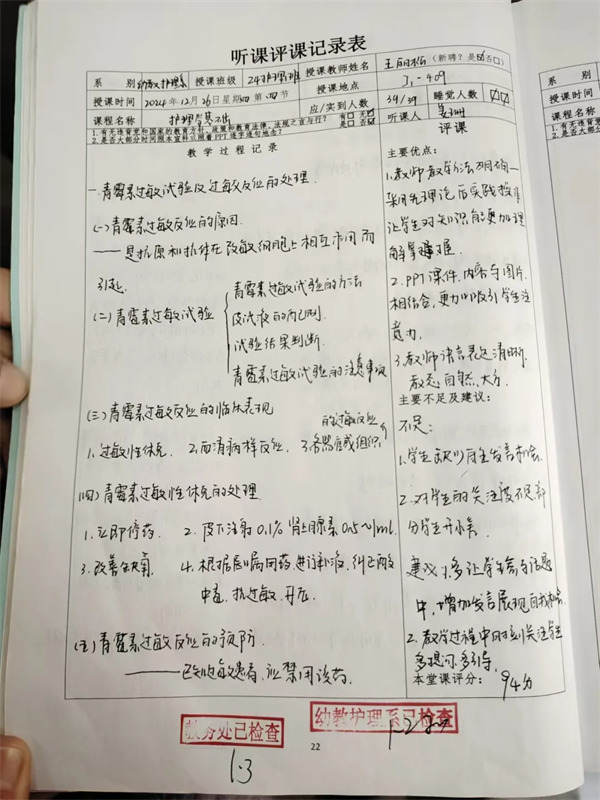 听课评课记录表
系 别 幼教护理系 授课班级 24护理班 授课教师姓名 (新聘?是 否□)
授课时间 2024年12月26日星期四第四节 授课地点 J1-409
课程名称 应/实到人数 39/39 睡觉人数
1.有无违背党和国家的教育方针、政策和教育法律、法规之言与行? 有□ 无 听课人
2.是否大部分时间照本宣科或照着PPT逐字逐句地念? 是□ 否
教学过程记录
一.青霉素过敏试验及过敏反应的处理.
(一)青霉素过敏反应的原因.
——是抗原和抗体在致敏细胞上相互作用而
引起.
(二)青霉素过敏试验
青霉素过敏试验的方法
及试液的配制.
试验结果判断.
青霉素过敏试验的注意事项
(三)青霉素过敏反应的临床表现
1.过敏性休克. 2.血清病样反应. 3.各器官或组织的过敏反应
(四)青霉素过敏性休克的处理
1.立即停药. 2.皮下注射0.1%肾上腺素0.5~1ml.
3.改善缺氧. 4.根据医嘱用药.进行补液.纠正酸
中毒.抗过敏.
(五)青霉素过敏反应的预防
——已知过敏患者,应禁用该药.
评课
主要优点:
1.教师教学方法明确
采用先理论,后实践操作
让学生对知识能更加理
解掌握.
2.PPT课件,内容与图片
相结合,更加吸引学生注
意力.
3.教师语言表达清晰,
教态自然、大方.
主要不足及建议:
不足:
1.学生缺少自主发言机会.
2.对学生的关注度不足,部
分学生开小差.
建议:1.多让学生参与话题
中,增加发言展现自我机会.
2.教学过程中时刻关注学生
多提问,多引导.
本堂课评分: 94分
教务处已检查
幼教护理系已检查
22
1.3